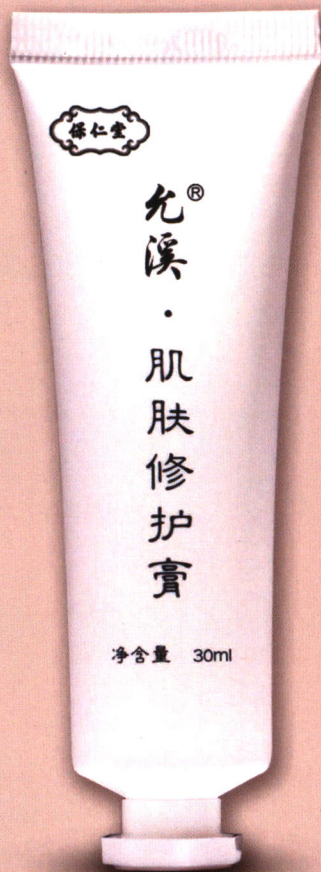 保仁堂
允溪®·肌肤修护膏
净含量 30ml